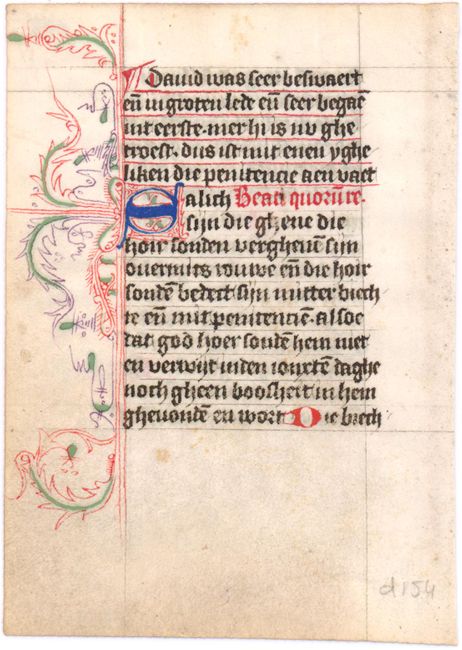 Dauid was seer beswaert
en̄ in groten lede en̄ seer begaē
int eerste· mer hi is nv ghe
troest· dus ist mit enen yghe
liken die penitencie aen vaet
Salich Beati quorū re·
sijn die ghene die
hoir sonden vergheuē sijn
ouermits rouwe en̄ die hoir
sondē bedect sijn mitter biech
te en̄ mit penitenciē· alsoe
dat god hoer sondē hem niet
en verwijt inden ioncstē daghe
noch gheen boosheit in hem
gheuondē en wort Die biech
d154